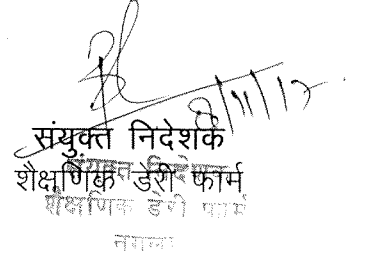 8/11/17
संयुक्त निदेशक
शैक्षणिक डेरी फार्म
संयुक्त निदेशक
शैक्षणिक डेरी फार्म
नगला